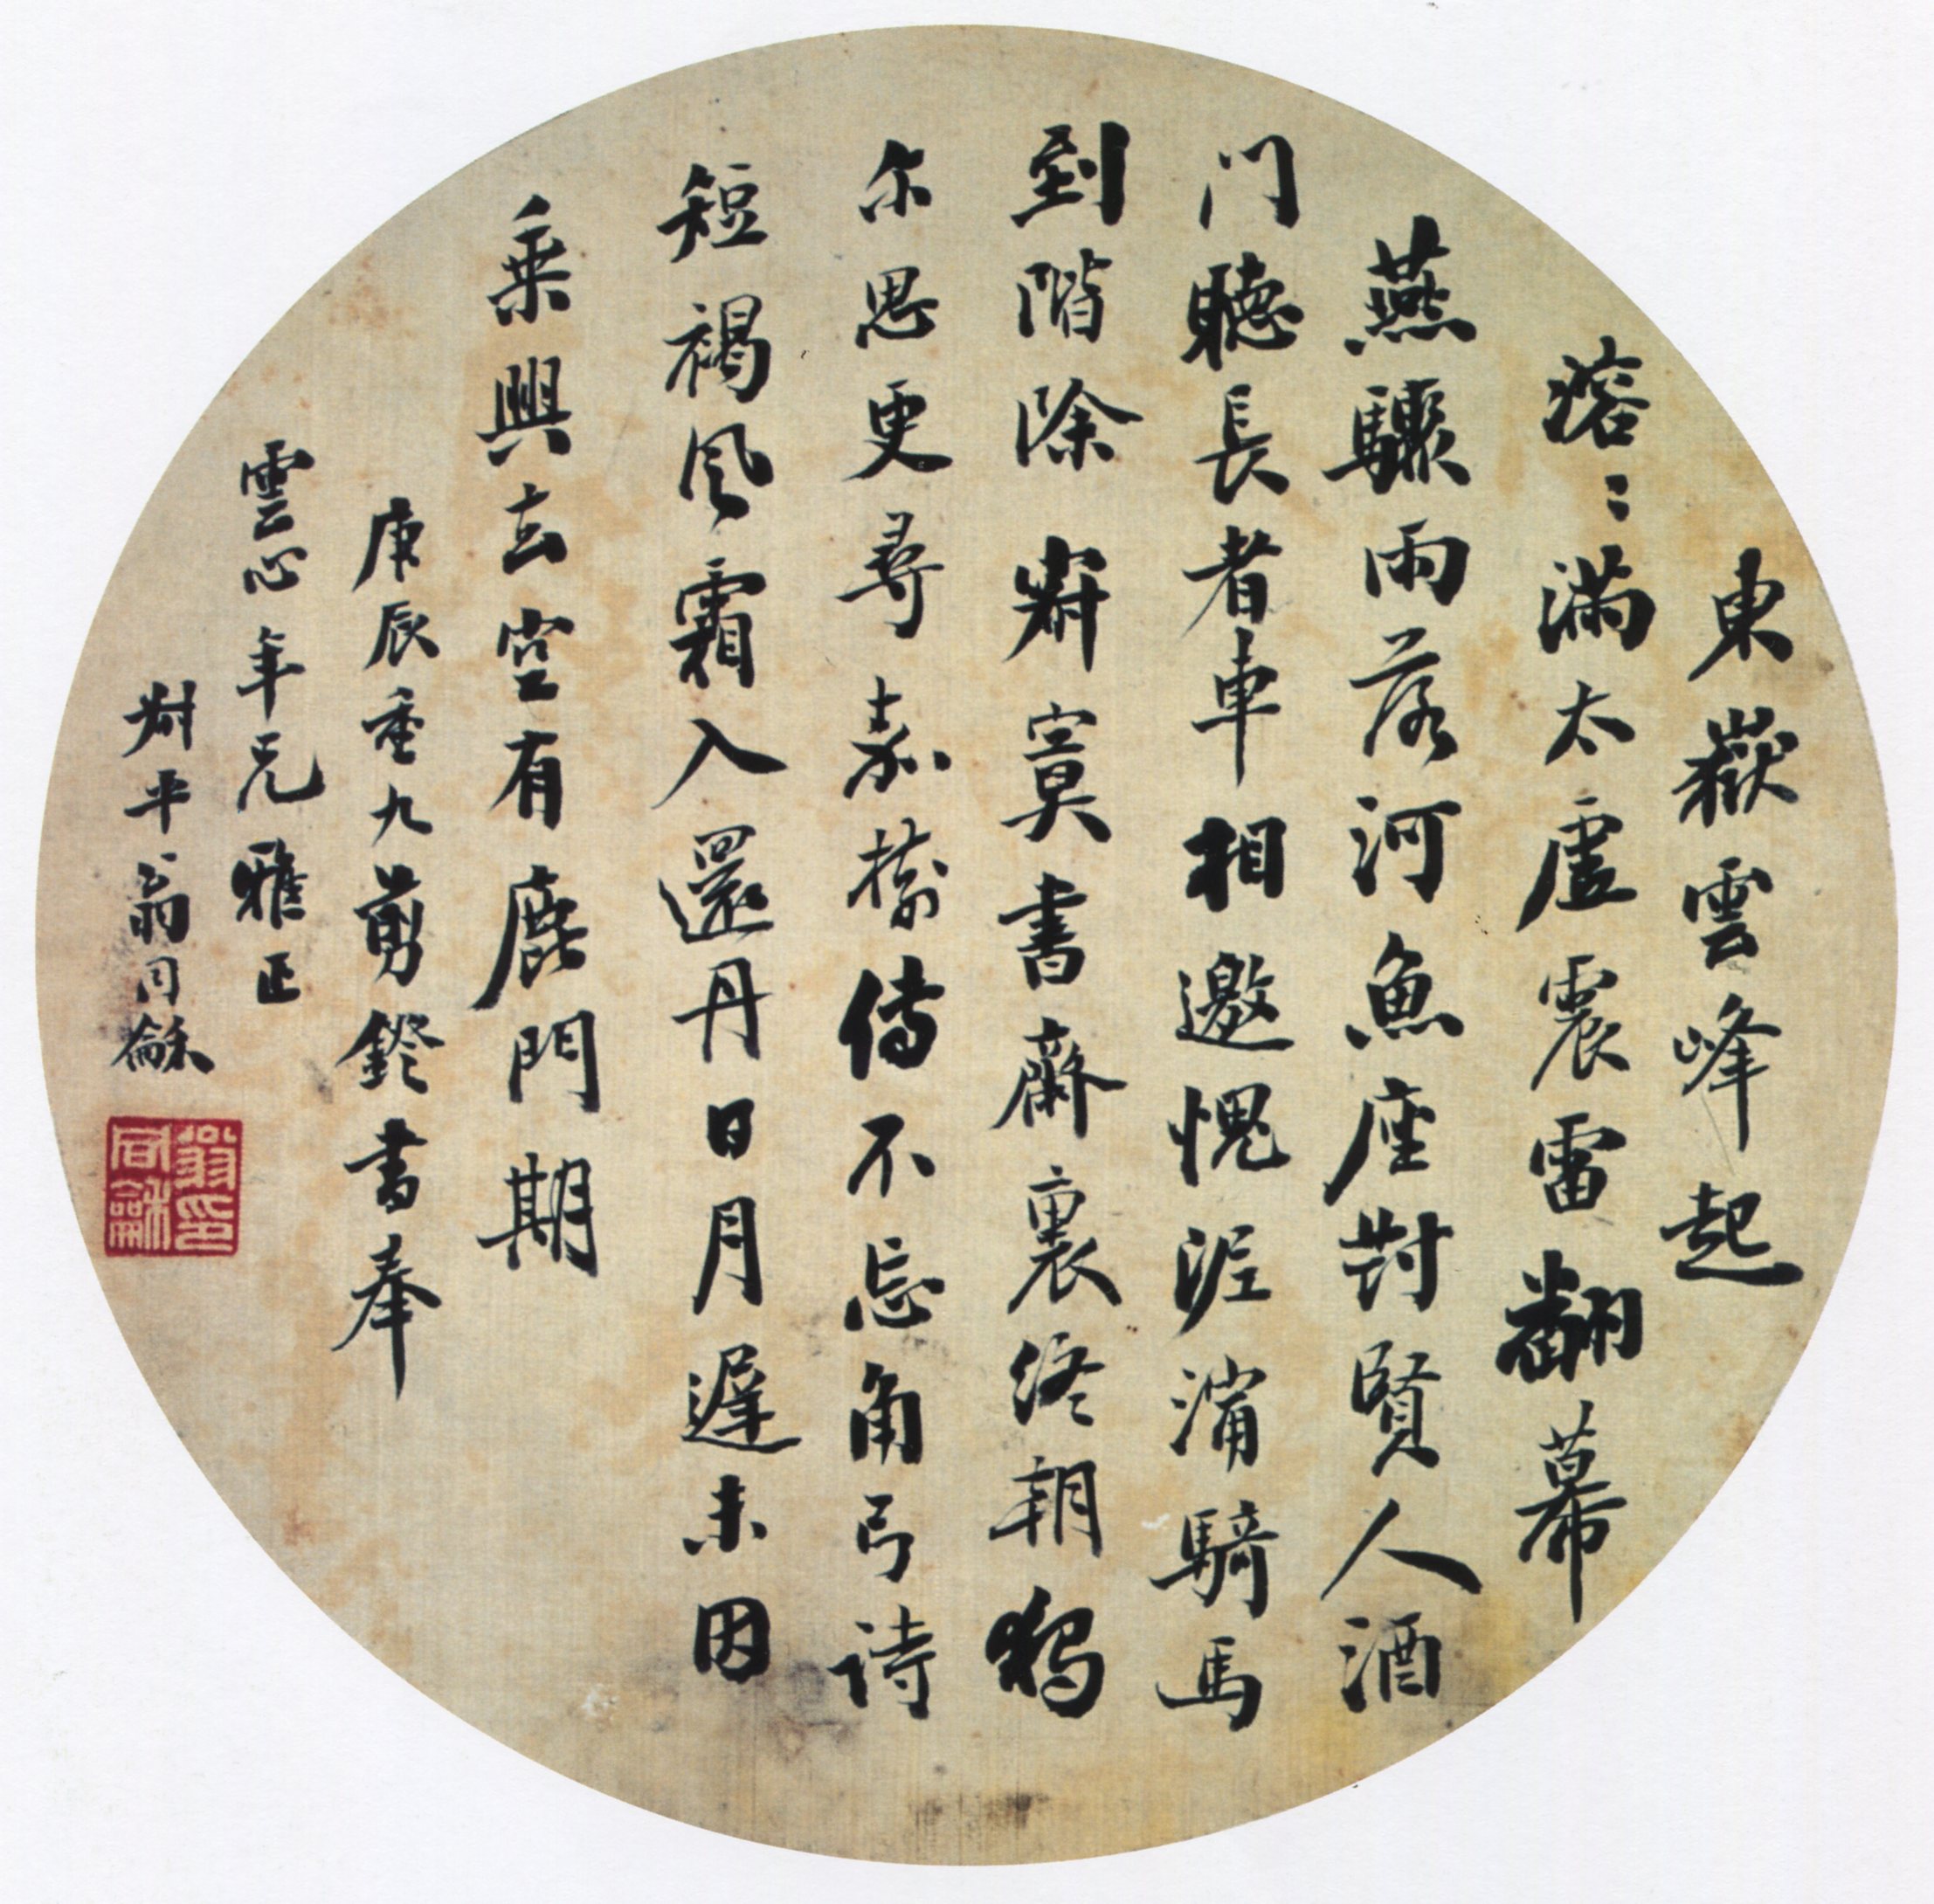 東嶽雲峰起
溶〻滿太虛震雷翻幕
燕驟雨落河魚座對賢人酒
门聽長者車相邀愧泥濘騎馬
到階除 寂寞書齋裏終朝獨
尔思更尋嘉樹傳不忘角弓詩
短褐風霜入還丹日月遲未因
乘興去空有鹿門期
庚辰重九剪鐙書奉
雲心年兄雅正
尗平翁同龢
翁同龢印